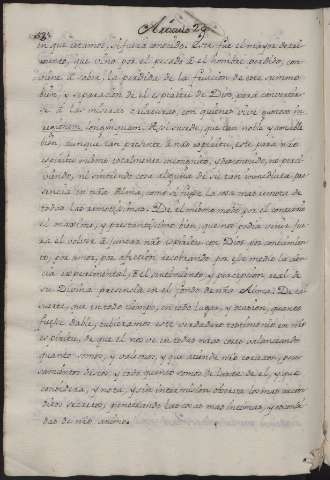 58.
Articulo 29.
en que estamos, si fuera conocido. Este fue el mayor detri-
mento, que vino por el pecado à el hombre perdido, con-
viene à saber, la perdida de la fruicion de este summo
bien, y separacion de el espiritu de Dios, para convertir-
se à las miseras criaturas, con quienes vive gustoso in
regionem longinquam. Assi sucede, que tan noble y amable
bien, aunque tan presente à nro espiritu, este para nro
espiritu mismo totalmente incognito, y desconocido, no perci-
viendo, ni sintiendo cosa alguna de su tan immediata pre-
sencia en nra Alma, como si fuese la cosa mas remota de
todas las remotissimas. De el mismo modo por el contrario
el maximo, y prestantissimo bien, que nos podia venir, fue-
ra el volver à juntar nro espiritu con Dios por conocimien-
to, por amor, por aficion, recobrando por este medio la cien-
cia experimental, ò el sentimiento y percepcion real de
su Divina presencia en el fondo de nra Alma: De tal
suerte, que en todo tiempo, en todo lugar, y ocasion, quanto
fuesse dable, tubieramos este verdadero testimonio en nro
espiritu, de que el nos ve en todas nras cosas valanzando
quanto somos, y valemos, y que atiende nro corazon, pen-
samientos deseos, y todo quanto somos delante de el, y que
considera, y nota, y sin intermision observa los mas ocul-
tos secretos, penetrando las cosas mas intimas, y escondi-
das de nro animo.